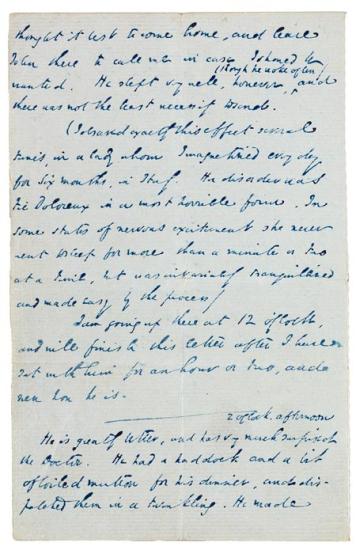 thought it best to come home, and leave
John there to call me in case I should be
(though he woke often)
wanted. He slept very well, however, and
there was not the least necessity
(I observed exactly this effect several
times, in a lady whom I magnetized every day
for six months, in Italy. Her disorder was
Tic Doloreux in a most horrible form. In
some states of nervous excitement she never
went asleep for more than a minute or two
at a time, but was invariably tranquillized
and made easy by the process)
I am going up there at 12 oClock,
and will finish this letter after I have
sat with him for an hour or two, and
seen how he is.
2 oClock. afternoon
He is greatly better, and has very much surprised
the Doctor. He had a haddock and a bit
of boiled mutton for his dinner, and dis-
patched them in a twinkling. He made